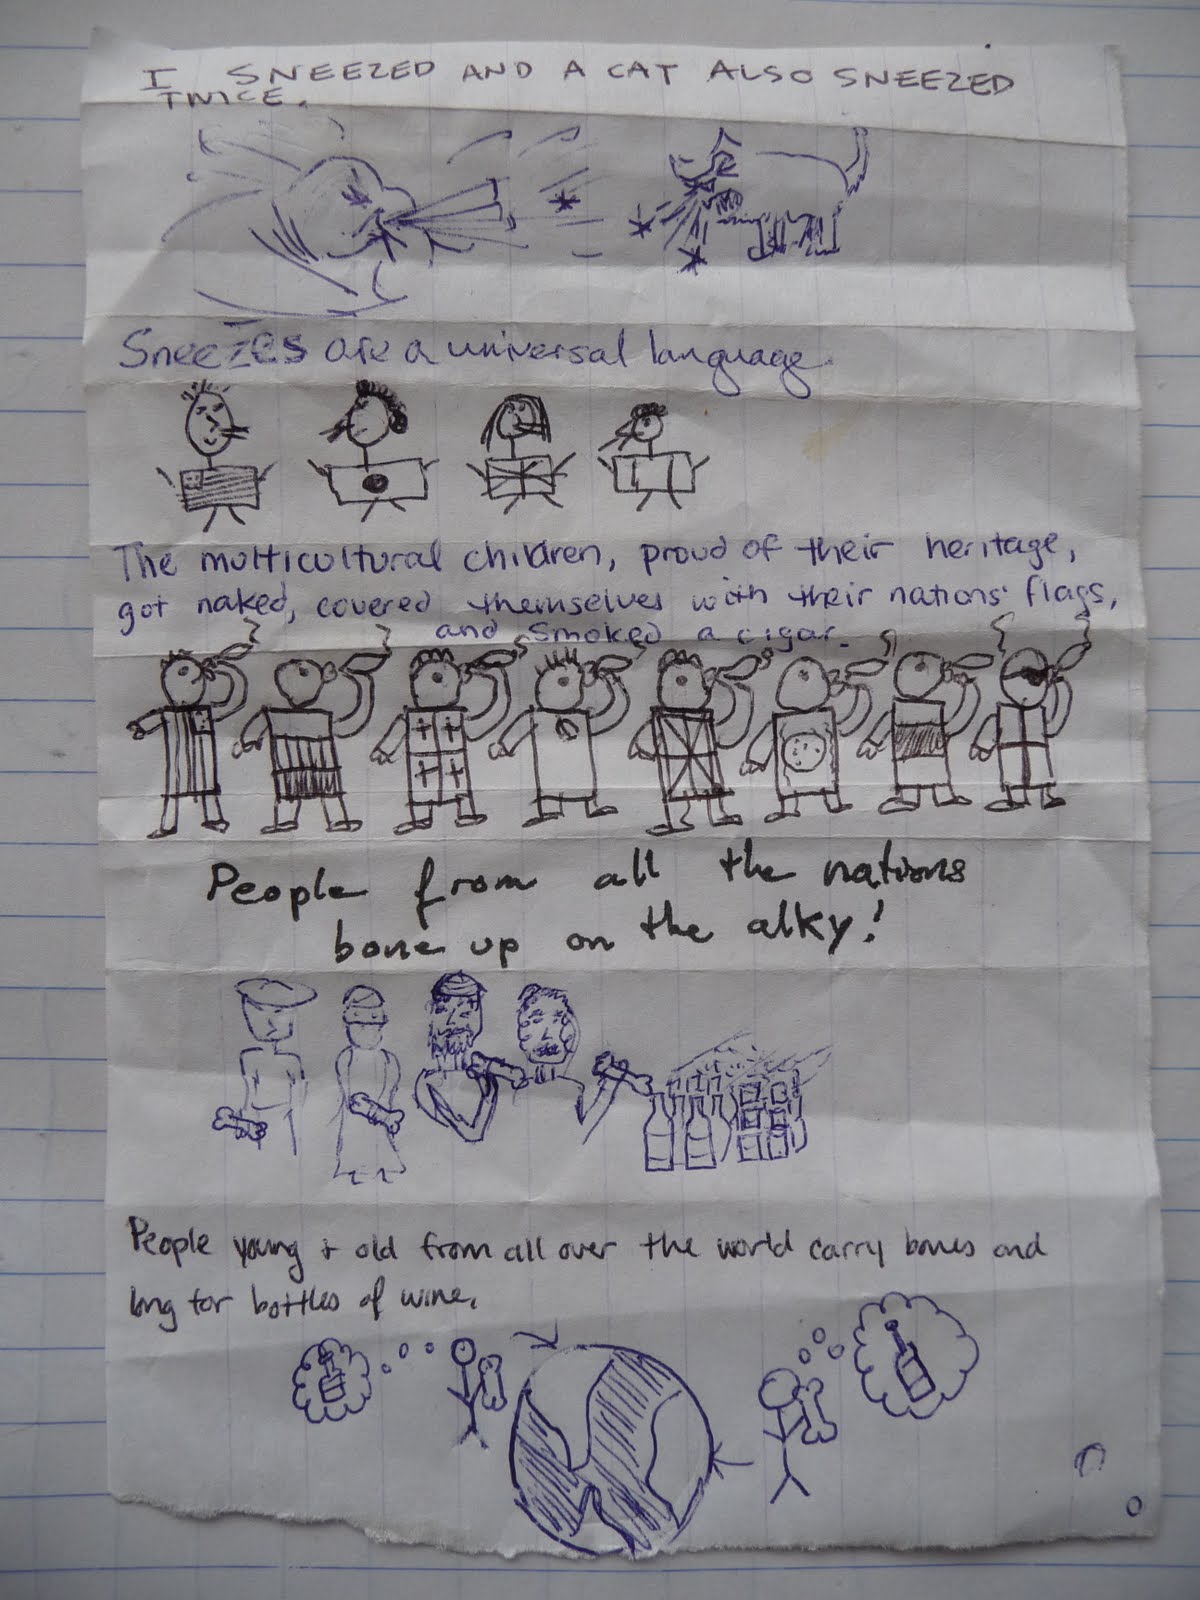 I SNEEZED AND A CAT ALSO SNEEZED
TWICE.
Sneezes are a universal language.
The multicultural children, proud of their heritage,
got naked, covered themselves with their nations' flags,
and smoked a cigar.
People from all the nations
bone up on the alky!
People young + old from all over the world carry bones and
long for bottles of wine.